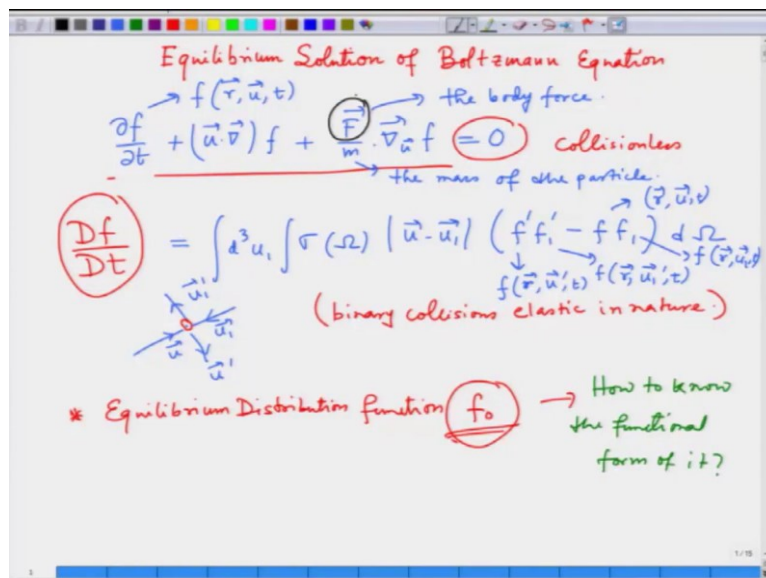 Equilibrium Solution of Boltzmann Equation
f(r⃗, u⃗, t)
the body force.
∂f/∂t + (u⃗·∇⃗) f + F⃗/m · ∇⃗_u⃗ f = 0 collisionless
the mass of the particle.
(r⃗, u⃗, t)
Df/Dt = ∫d³u₁ ∫σ(Ω) |u⃗ - u⃗₁| (f'f₁' - f f₁) dΩ
f(r⃗, u⃗₁, t)
f(r⃗, u⃗', t) f(r⃗, u⃗₁', t)
u⃗₁'
u⃗₁
u⃗ u⃗'
(binary collisions elastic in nature.)
* Equilibrium Distribution function f₀ → How to know
the functional
form of it?
1/15